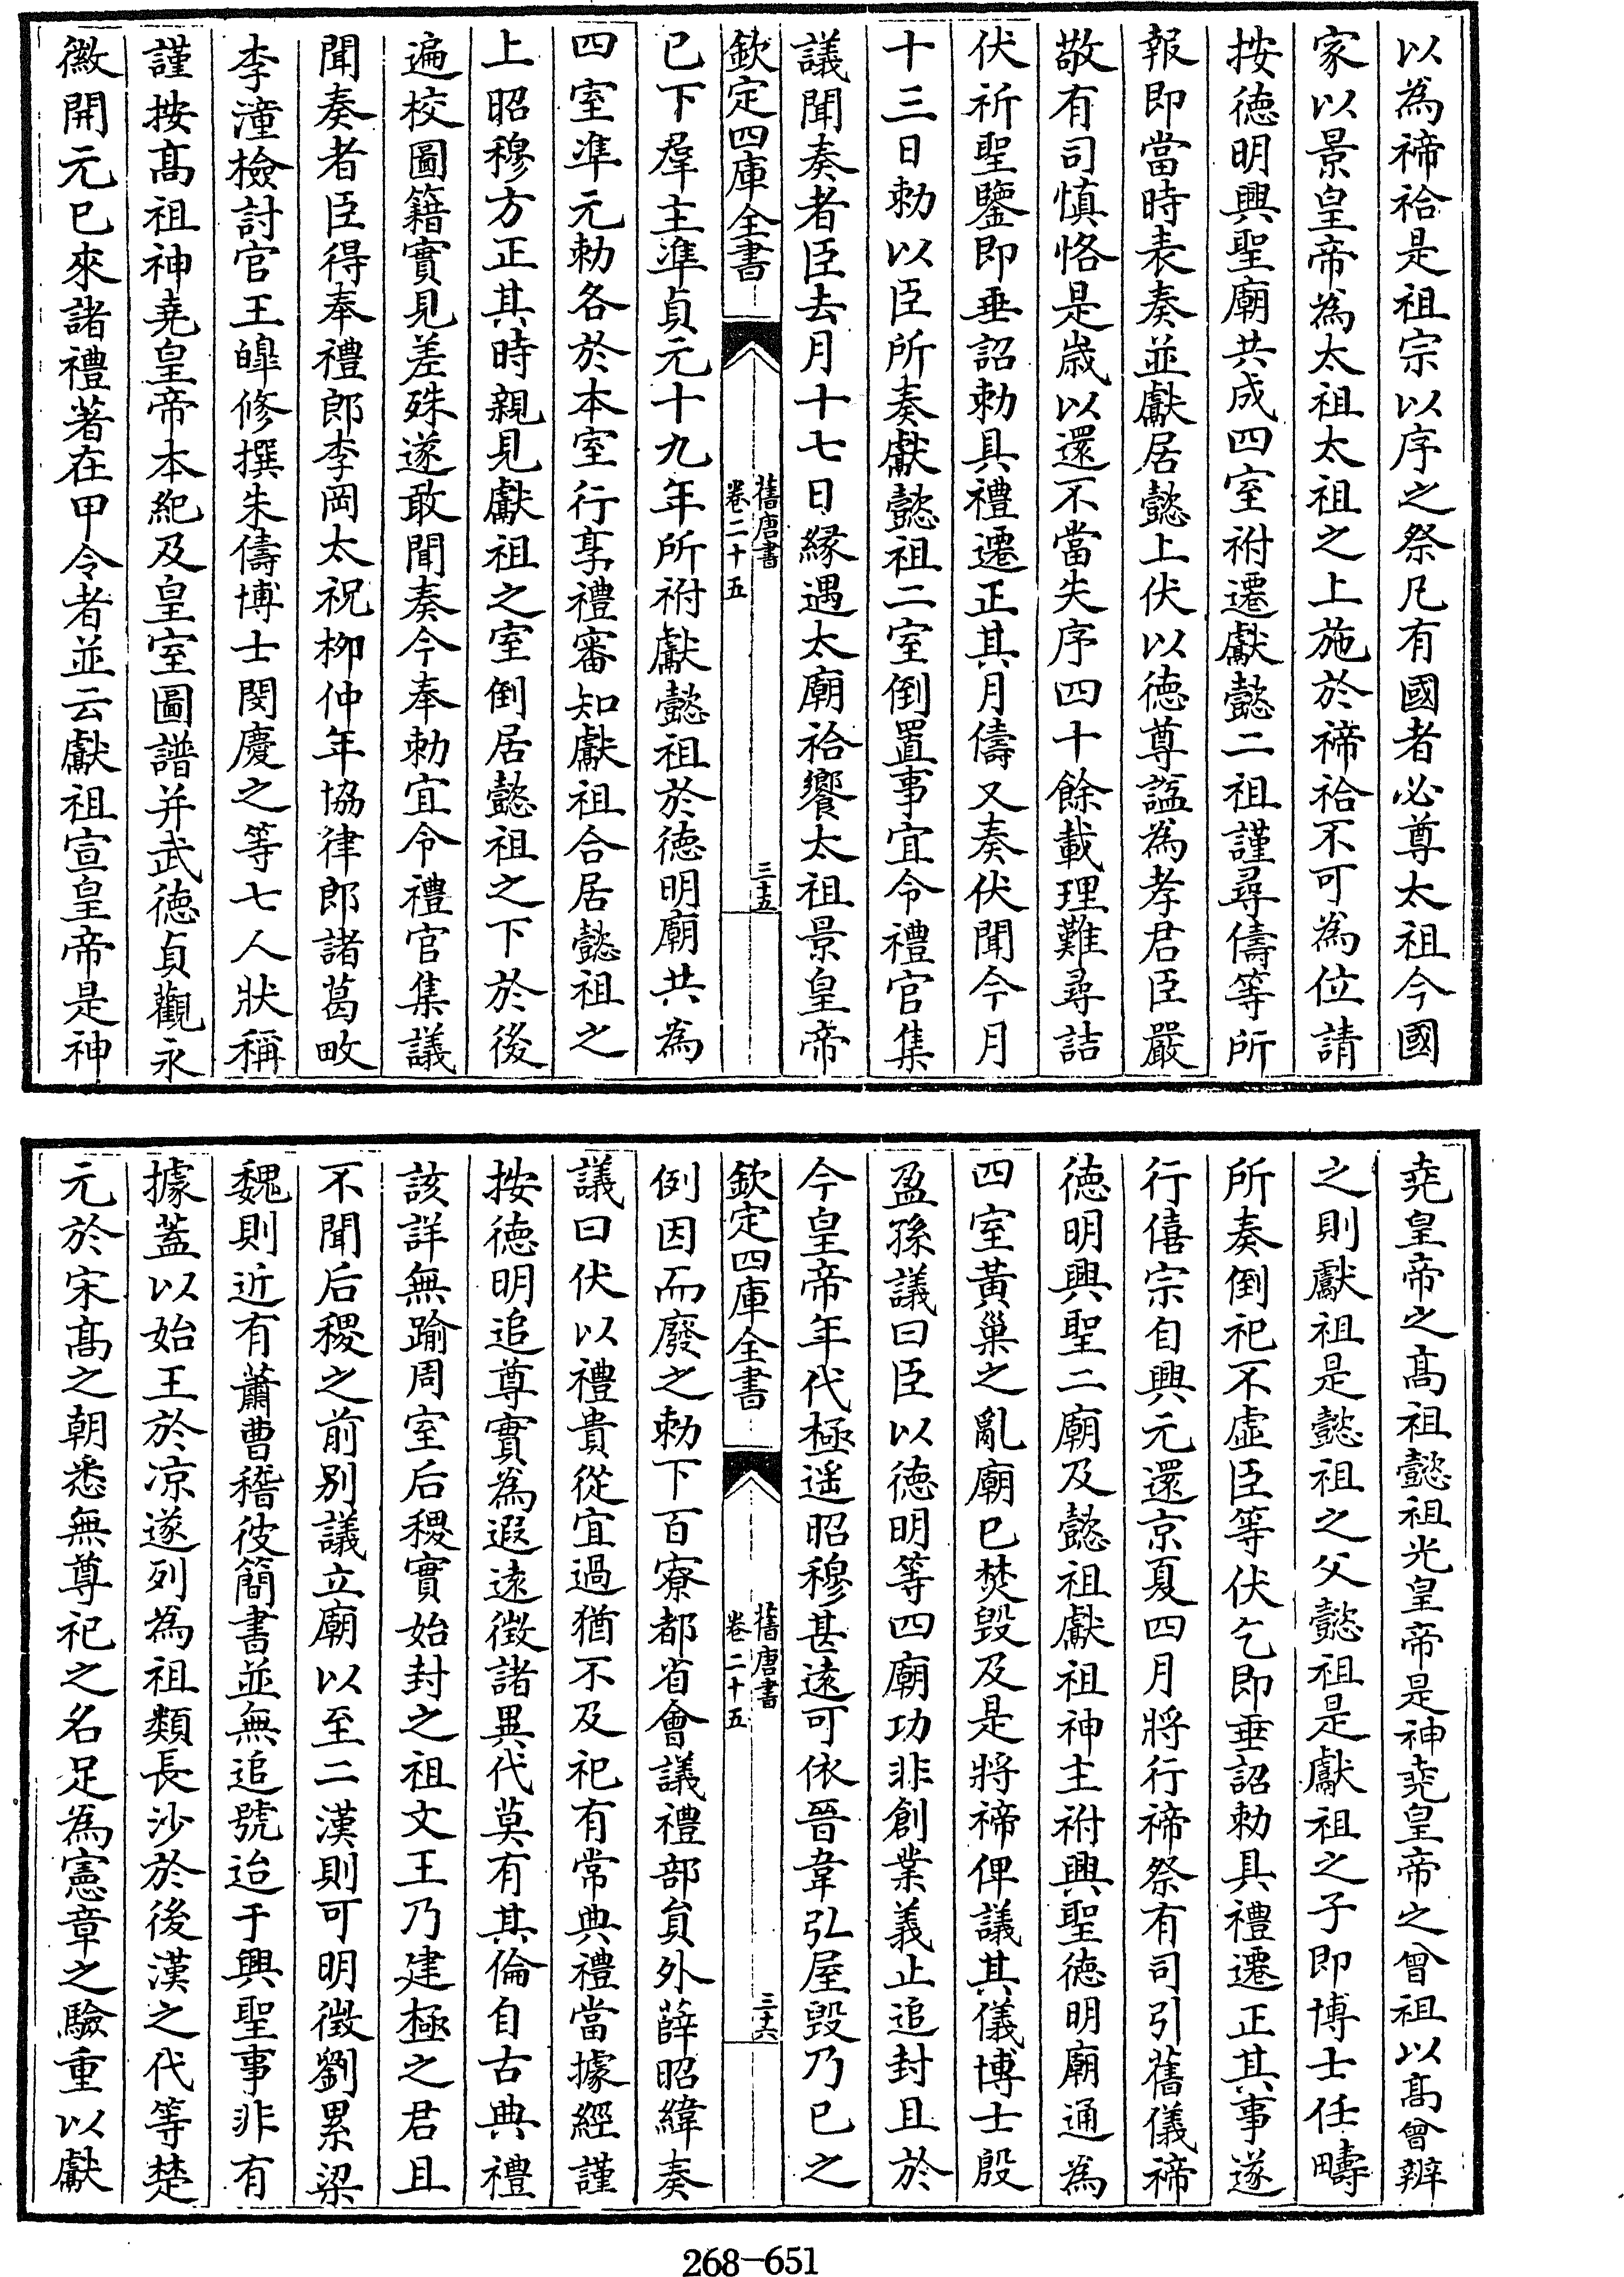 以為禘祫是祖宗以序之祭凡有國者必尊太祖今國
家以景皇帝為太祖太祖之上施於禘祫不可為位請
按德明興聖廟共成四室祔遷獻懿二祖謹尋儔等所
報即當時表奏並獻居懿上伏以德尊諡為孝君臣嚴
敬有司慎恪是歲以還不當失序四十餘載理難尋詰
伏祈聖鑒即垂詔勅具禮遷正其月儔又奏伏聞今月
十三日勅以臣所奏獻懿祖二室倒置事宜令禮官集
議聞奏者臣去月十七日縁遇太廟祫饗太祖景皇帝
欽定四庫全書
舊唐書
卷二十五
三十五
已下羣主準貞元十九年所祔獻懿祖於德明廟共為
四室準元勅各於本室行享禮審知獻祖合居懿祖之
上昭穆方正其時親見獻祖之室倒居懿祖之下於後
遍校圖籍實見差殊遂敢聞奏今奉勅宜令禮官集議
聞奏者臣得奉禮郎李岡太祝柳仲年協律郎諸葛畋
李潼檢討官王皥修撰朱儔博士閔慶之等七人狀稱
謹按髙祖神堯皇帝本紀及皇室圖譜并武德貞觀永
徽開元已來諸禮著在甲令者並云獻祖宣皇帝是神
堯皇帝之髙祖懿祖光皇帝是神堯皇帝之曾祖以髙曾辨
之則獻祖是懿祖之父懿祖是獻祖之子即博士任疇
所奏倒祀不虛臣等伏乞即垂詔勅具禮遷正其事遂
行僖宗自興元還京夏四月將行禘祭有司引舊儀禘
德明興聖二廟及懿祖獻祖神主祔興聖德明廟通為
四室黃巢之亂廟已焚毀及是將禘俾議其儀博士殷
盈孫議曰臣以德明等四廟功非創業義止追封且於
今皇帝年代極遥昭穆甚遠可依晉韋弘屋毀乃已之
欽定四庫全書
舊唐書
卷二十五
三十六
例因而廢之勅下百寮都省會議禮部員外薛昭緯奏
議曰伏以禮貴從宜過猶不及祀有常典禮當據經謹
按德明追尊實為遐遠徵諸異代莫有其倫自古典禮
該詳無踰周室后稷實始封之祖文王乃建極之君且
不聞后稷之前别議立廟以至二漢則可明徵劉累梁
魏則近有蕭曹稽彼簡書並無追號迨于興聖事非有
據蓋以始王於凉遂列為祖類長沙於後漢之代等楚
元於宋髙之朝悉無尊祀之名足為憲章之驗重以獻
268-651